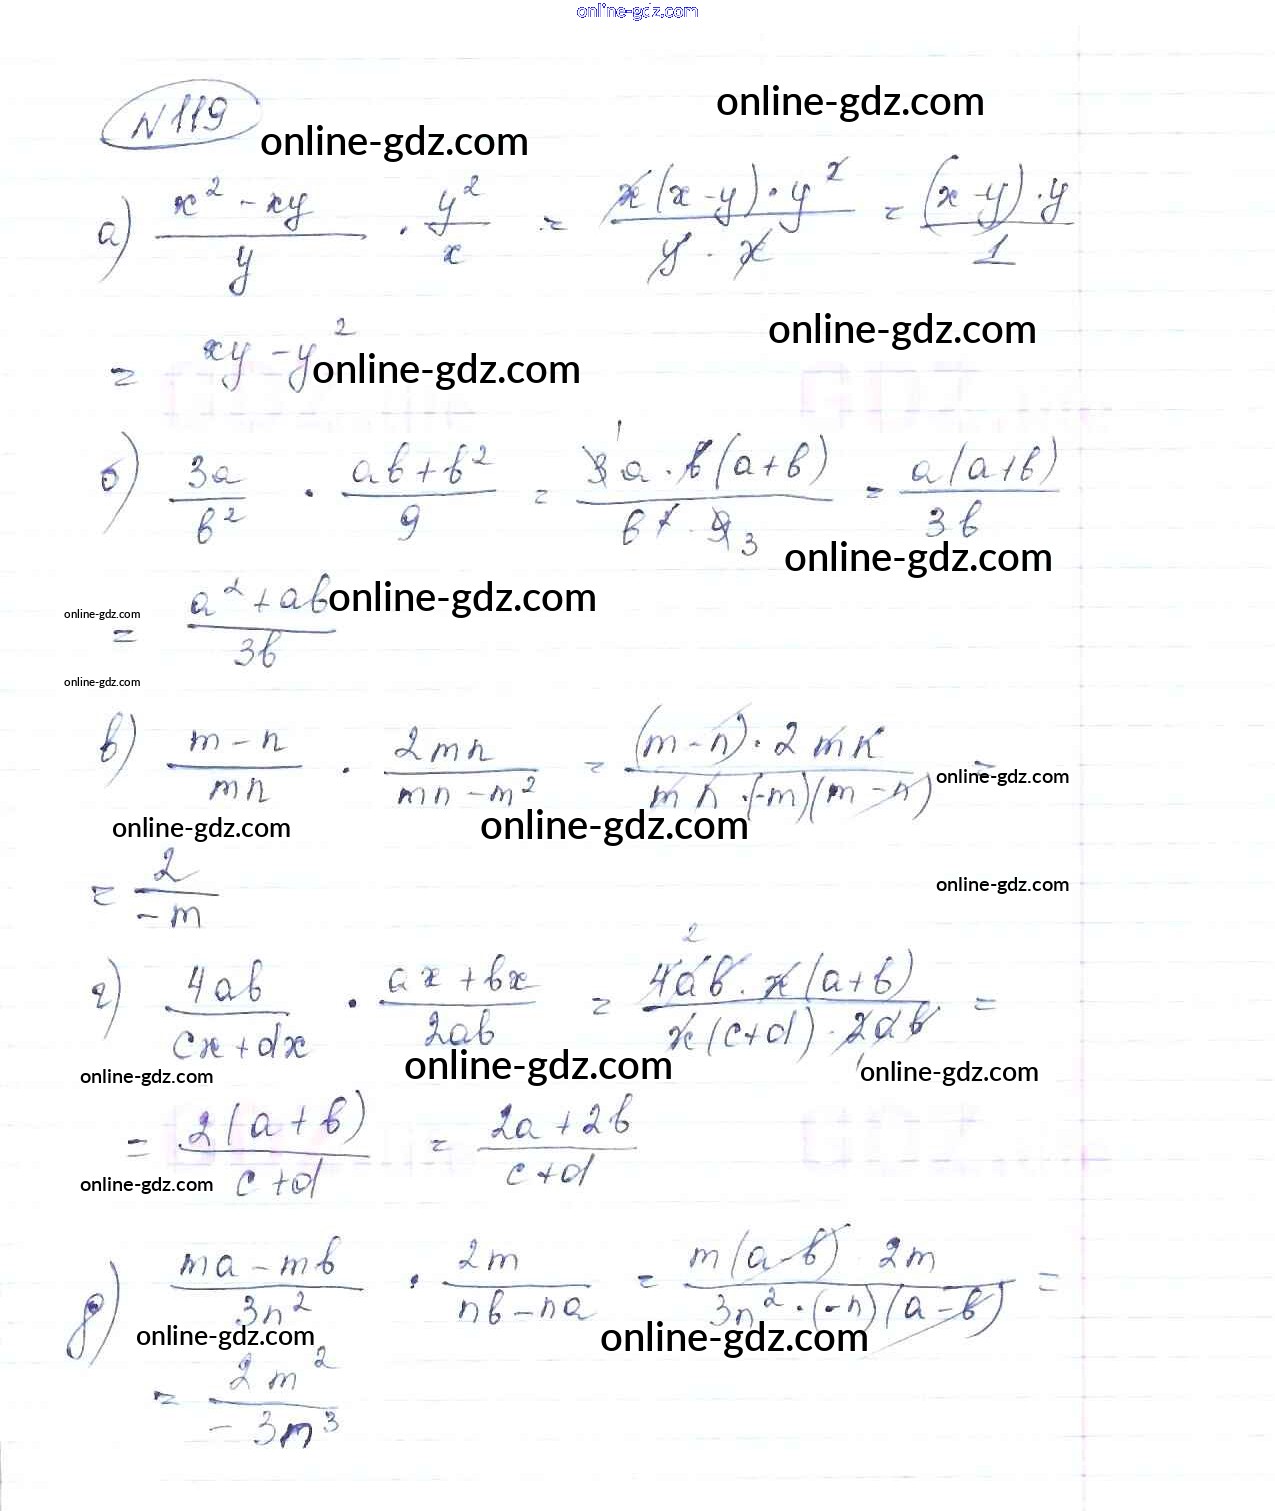 online-gdz.com
№119
online-gdz.com
online-gdz.com
а) (x² - xy)/y · y²/x = (x(x-y)·y²)/(y·x) = ((x-y)·y)/1
= xy - y²
online-gdz.com
online-gdz.com
б) 3a/b² · (ab+b²)/9 = (3a·b(a+b))/(b²·9) = (a(a+b))/(3b)
1
3
online-gdz.com
= (a²+ab)/(3b)
online-gdz.com
online-gdz.com
online-gdz.com
в) (m-n)/(mn) · (2mn)/(mn-m²) = ((m-n)·2mn)/(mn·(-m)(m-n)) =
online-gdz.com
online-gdz.com
online-gdz.com
= 2/(-m)
online-gdz.com
г) (4ab)/(cx+dx) · (ax+bx)/(2ab) = (4ab·x(a+b))/(x(c+d)·2ab) =
2
1
online-gdz.com
online-gdz.com
online-gdz.com
= (2(a+b))/(c+d) = (2a+2b)/(c+d)
online-gdz.com
д) (ma-mb)/(3n²) · (2m)/(nb-na) = (m(a-b) 2m)/(3n²·(-n)(a-b)) =
online-gdz.com
online-gdz.com
= (2m²)/(-3m³)